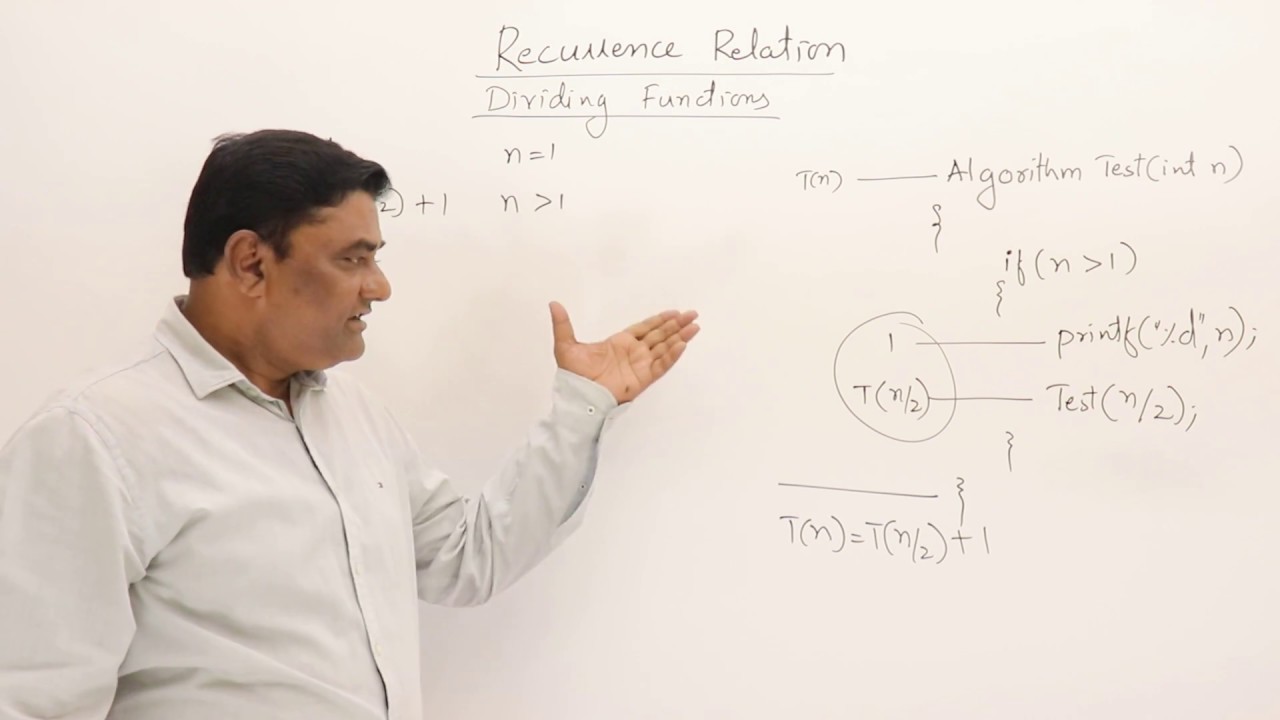 Recurrence Relation
Dividing Functions
n=1
2) +1 n >1
T(n) Algorithm Test(int n)
{
if(n >1)
{
1 printf("%d",n);
T(n/2) Test(n/2);
}
}
T(n)=T(n/2)+1